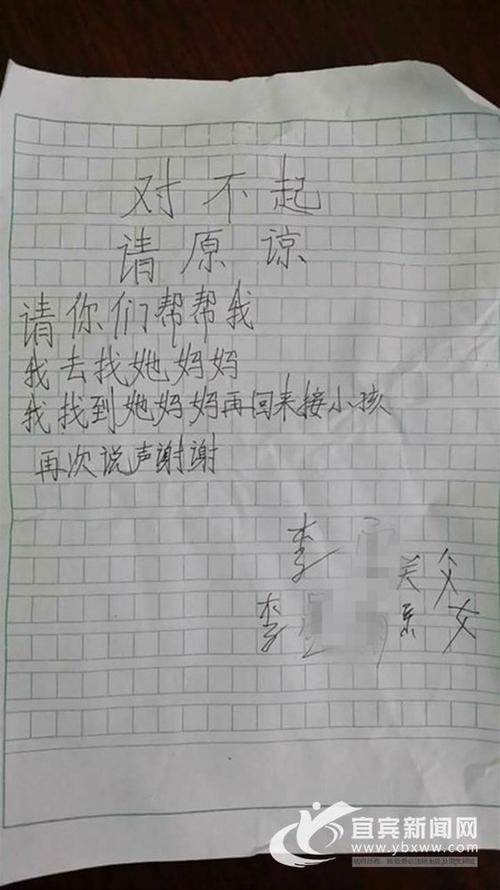 对不起
请原谅
请你们帮帮我
我去找她妈妈
我找到她妈妈再回来接小孩
再次说声谢谢
李
李
关系
父女
宜宾新闻网
www.ybxww.com